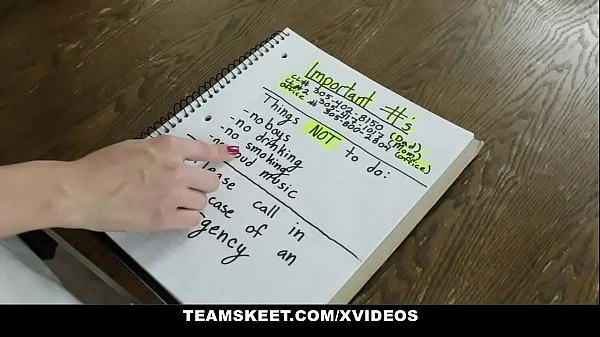 Important #'s
CL# 305-402-8150 (Dad)
CL#2 305-913-1013 (mom)
office # 305-800-2804 (office)
Things NOT to do:
-no boys
-no drinking
-no smoking
oud music
lease call in
case of an
gency
TEAMSKEET.COM/XVIDEOS